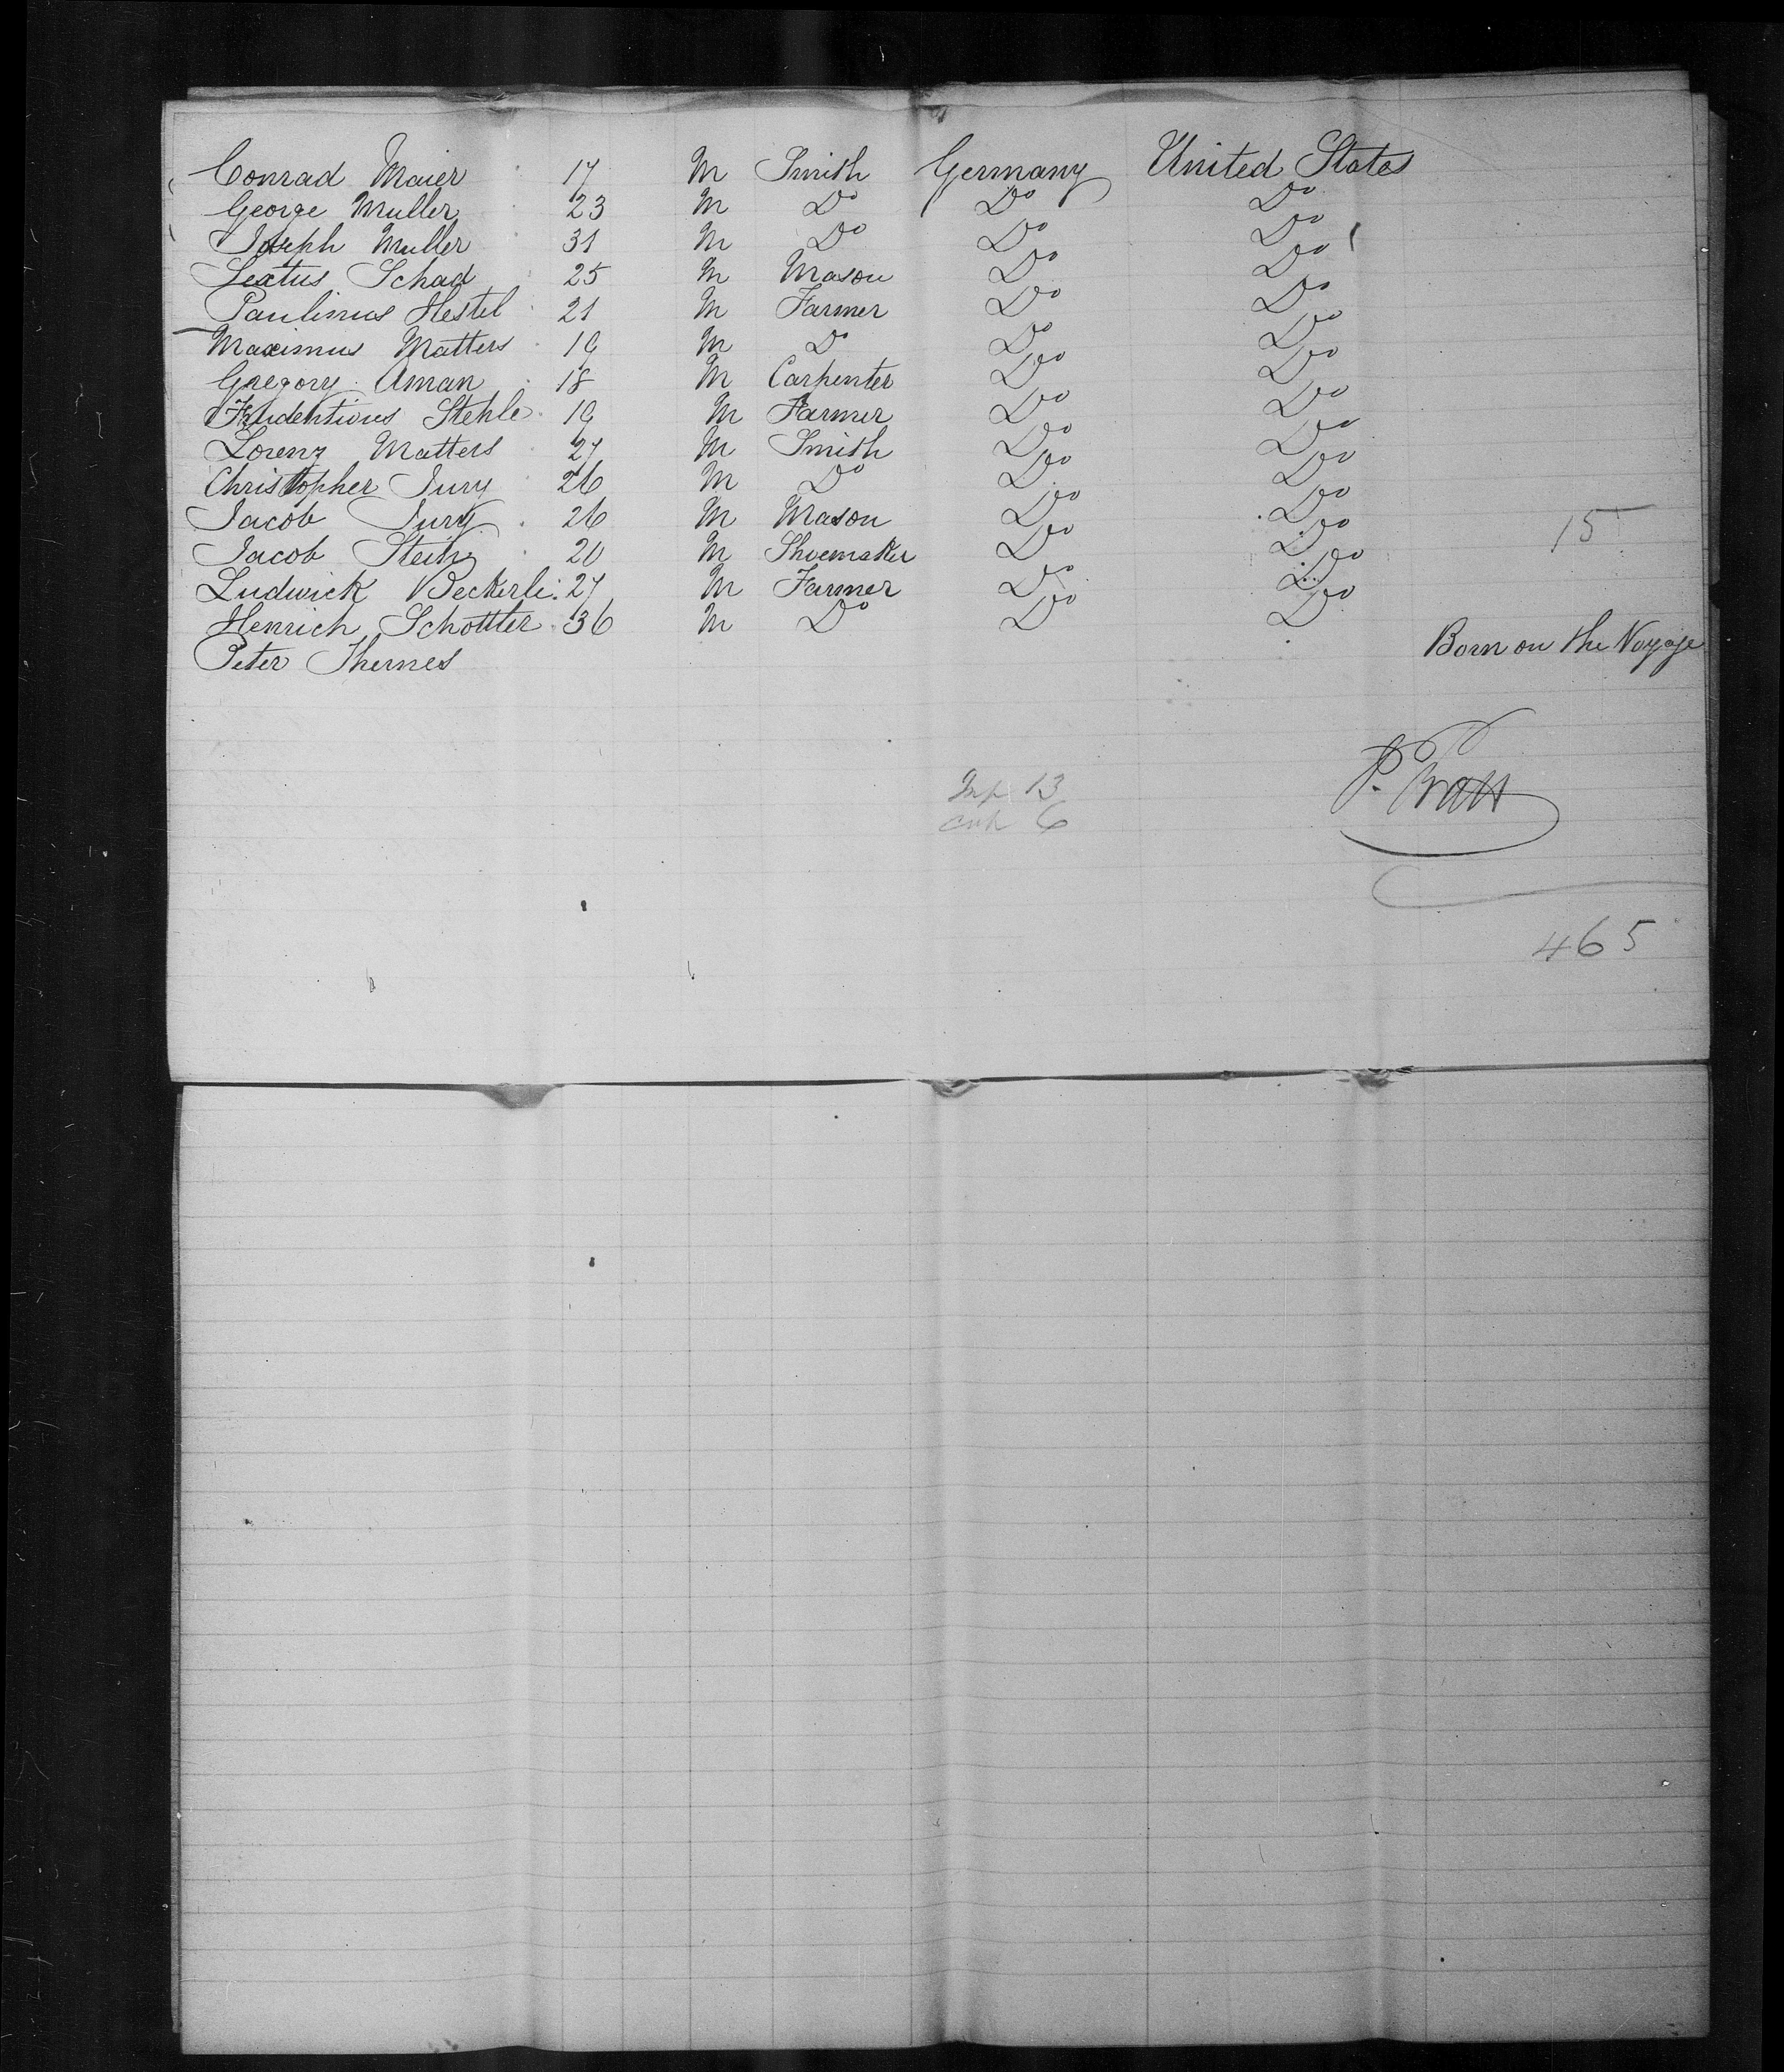 Conrad Maier 17 M Smith Germany United States
George Muller 23 M Do Do Do
Joseph Muller 31 M Do Do Do
Sextus Schad 25 M Mason Do Do
Paulinus Hestel 21 M Farmer Do Do
Maximus Matters 19 M Do Do Do
Gregory Aman 18 M Carpenter Do Do
Stehle 19 M Farmer Do Do
Lorenz Matters 27 M Smith Do Do
Christopher Jury 26 M Do Do Do
Jacob Jury 26 M Mason Do Do 15
Jacob 20 M Shoemaker Do Do
Ludwick Beckerle 27 M Farmer Do Do
Henrich Schottler 36 M Do Do Do
Peter Thernes Born on the Voyage
Inf 13
6
P. Pratt
465